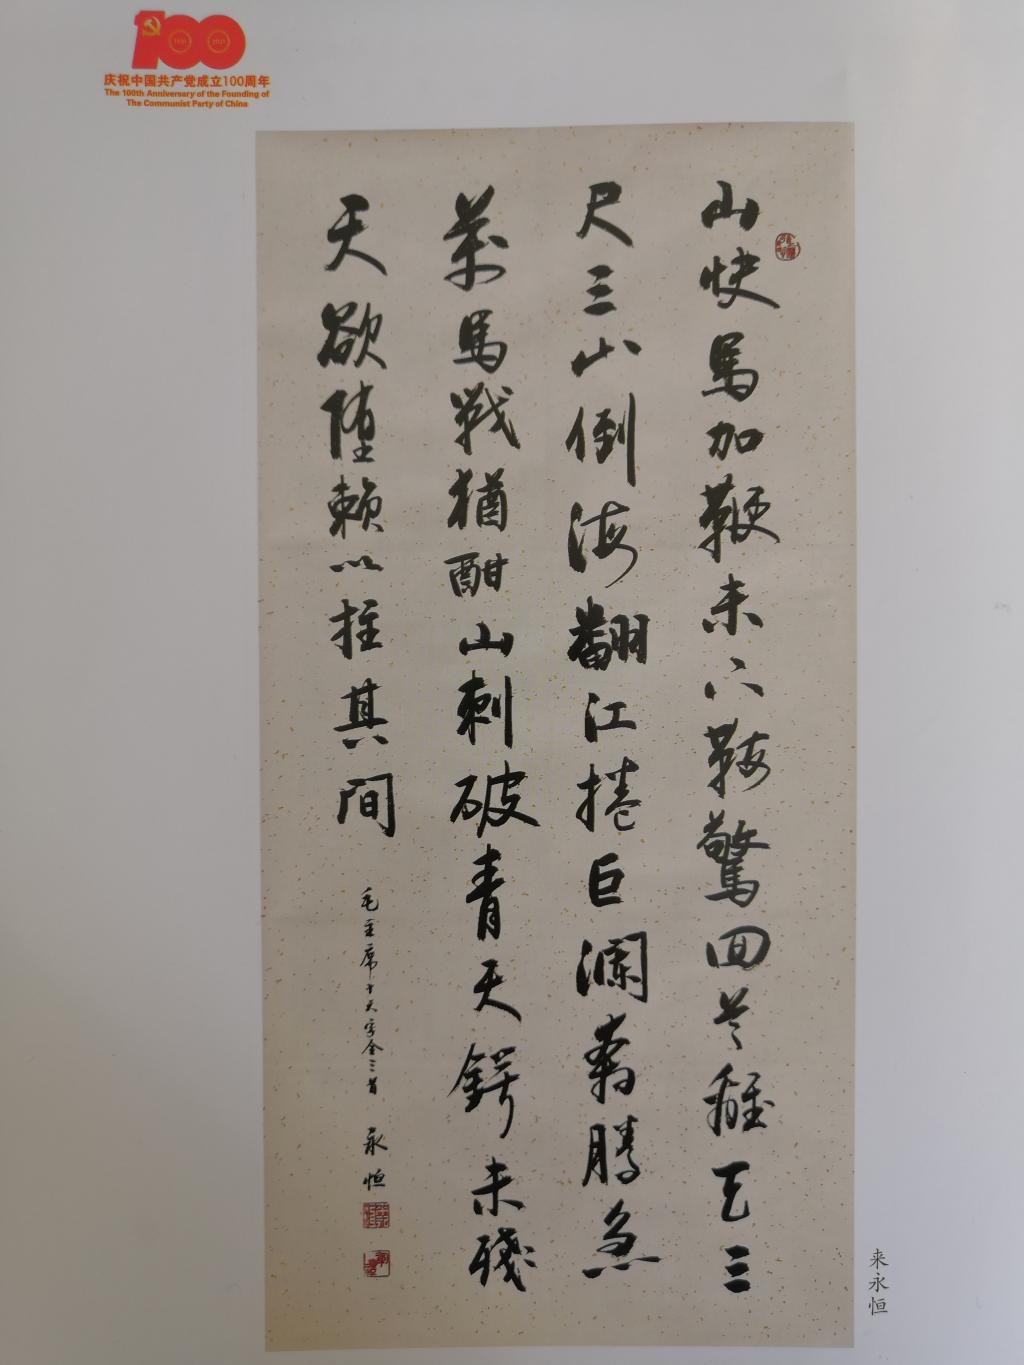 庆祝中国共产党成立100周年
The 100th Anniversary of the Founding of
The Communist Party of China
山快馬加鞭未下鞍驚回首離天三
尺三山倒海翻江捲巨瀾奔騰急
萬馬戰猶酣山刺破青天鍔未殘
天欲墮賴以拄其間
毛主席十六字令三首 永恒
来永恒